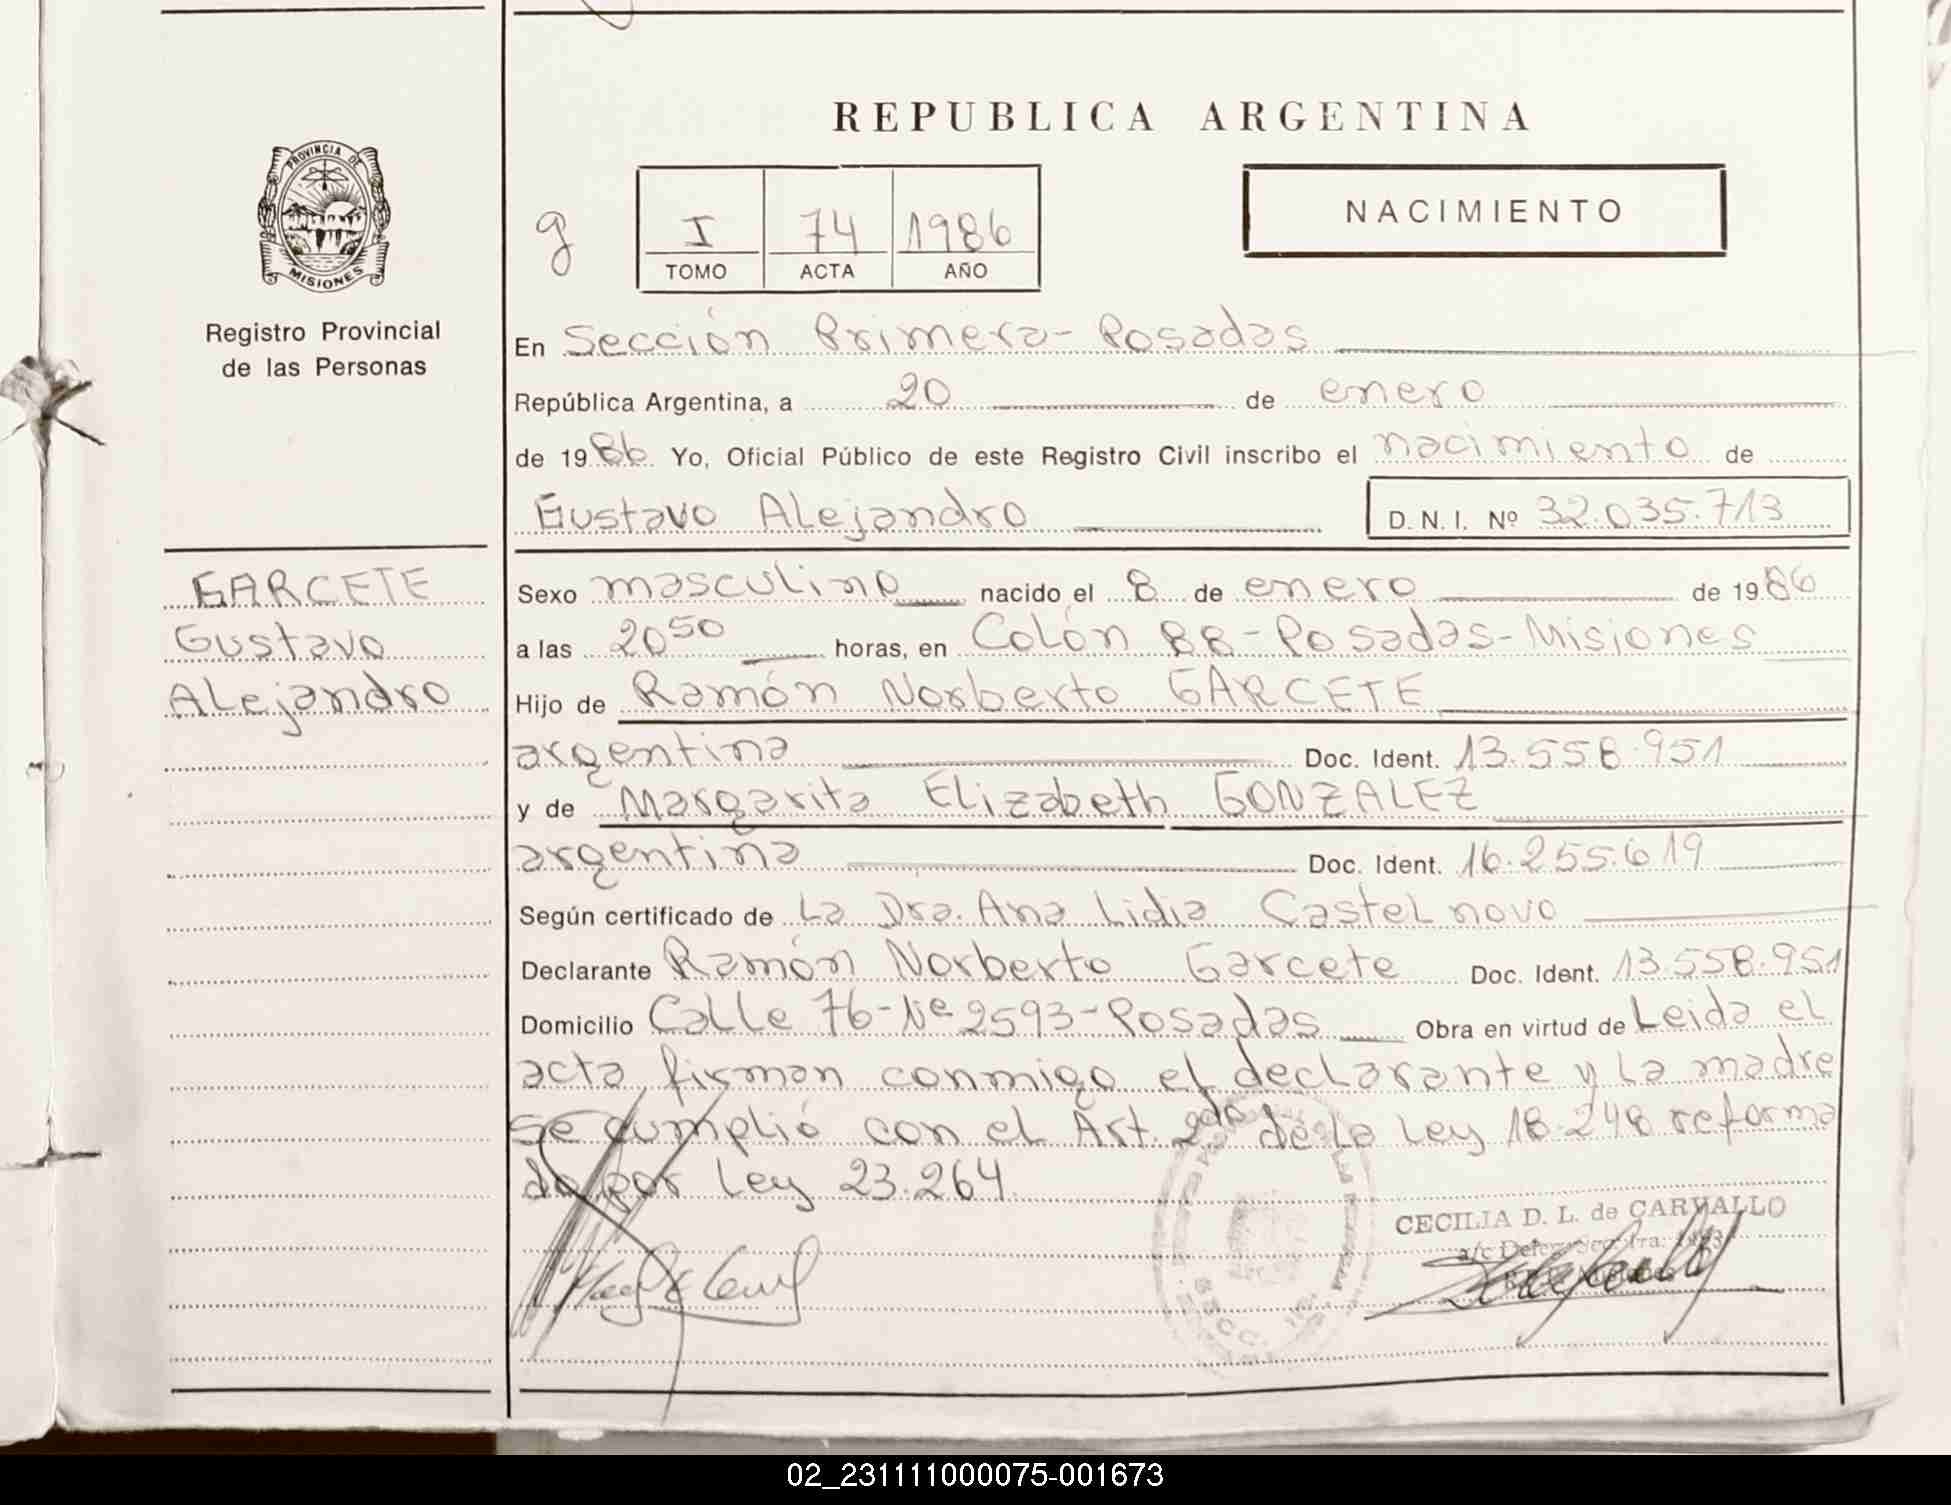 REPUBLICA ARGENTINA
PROVINCIA DE
MISIONES
Registro Provincial
de las Personas
g
I 74 1986
TOMO ACTA AÑO
NACIMIENTO
En Sección Primera - Posadas
República Argentina, a 20 de enero
de 1986 Yo, Oficial Público de este Registro Civil inscribo el nacimiento de
Gustavo Alejandro D. N. I. Nº 32.035.713
GARCETE
Gustavo
Alejandro
Sexo masculino nacido el 8 de enero de 1986
a las 20 50 horas, en Colón 88 - Posadas - Misiones
Hijo de Ramón Norberto GARCETE
argentina Doc. Ident. 13.558.951
y de Margarita Elizabeth GONZALEZ
argentina Doc. Ident. 16.255.619
Según certificado de La Dra. Ana Lidia Castelnovo
Declarante Ramón Norberto Garcete Doc. Ident. 13.558.951
Domicilio Calle 76 - Nº 2593 - Posadas Obra en virtud de Leida el
acta, firman conmigo el declarante y la madre
se cumplió con el Art. 2do de la Ley 18.248 reforma
do por Ley 23.264.
CECILIA D. L. de CARVALLO
02_231111000075-001673